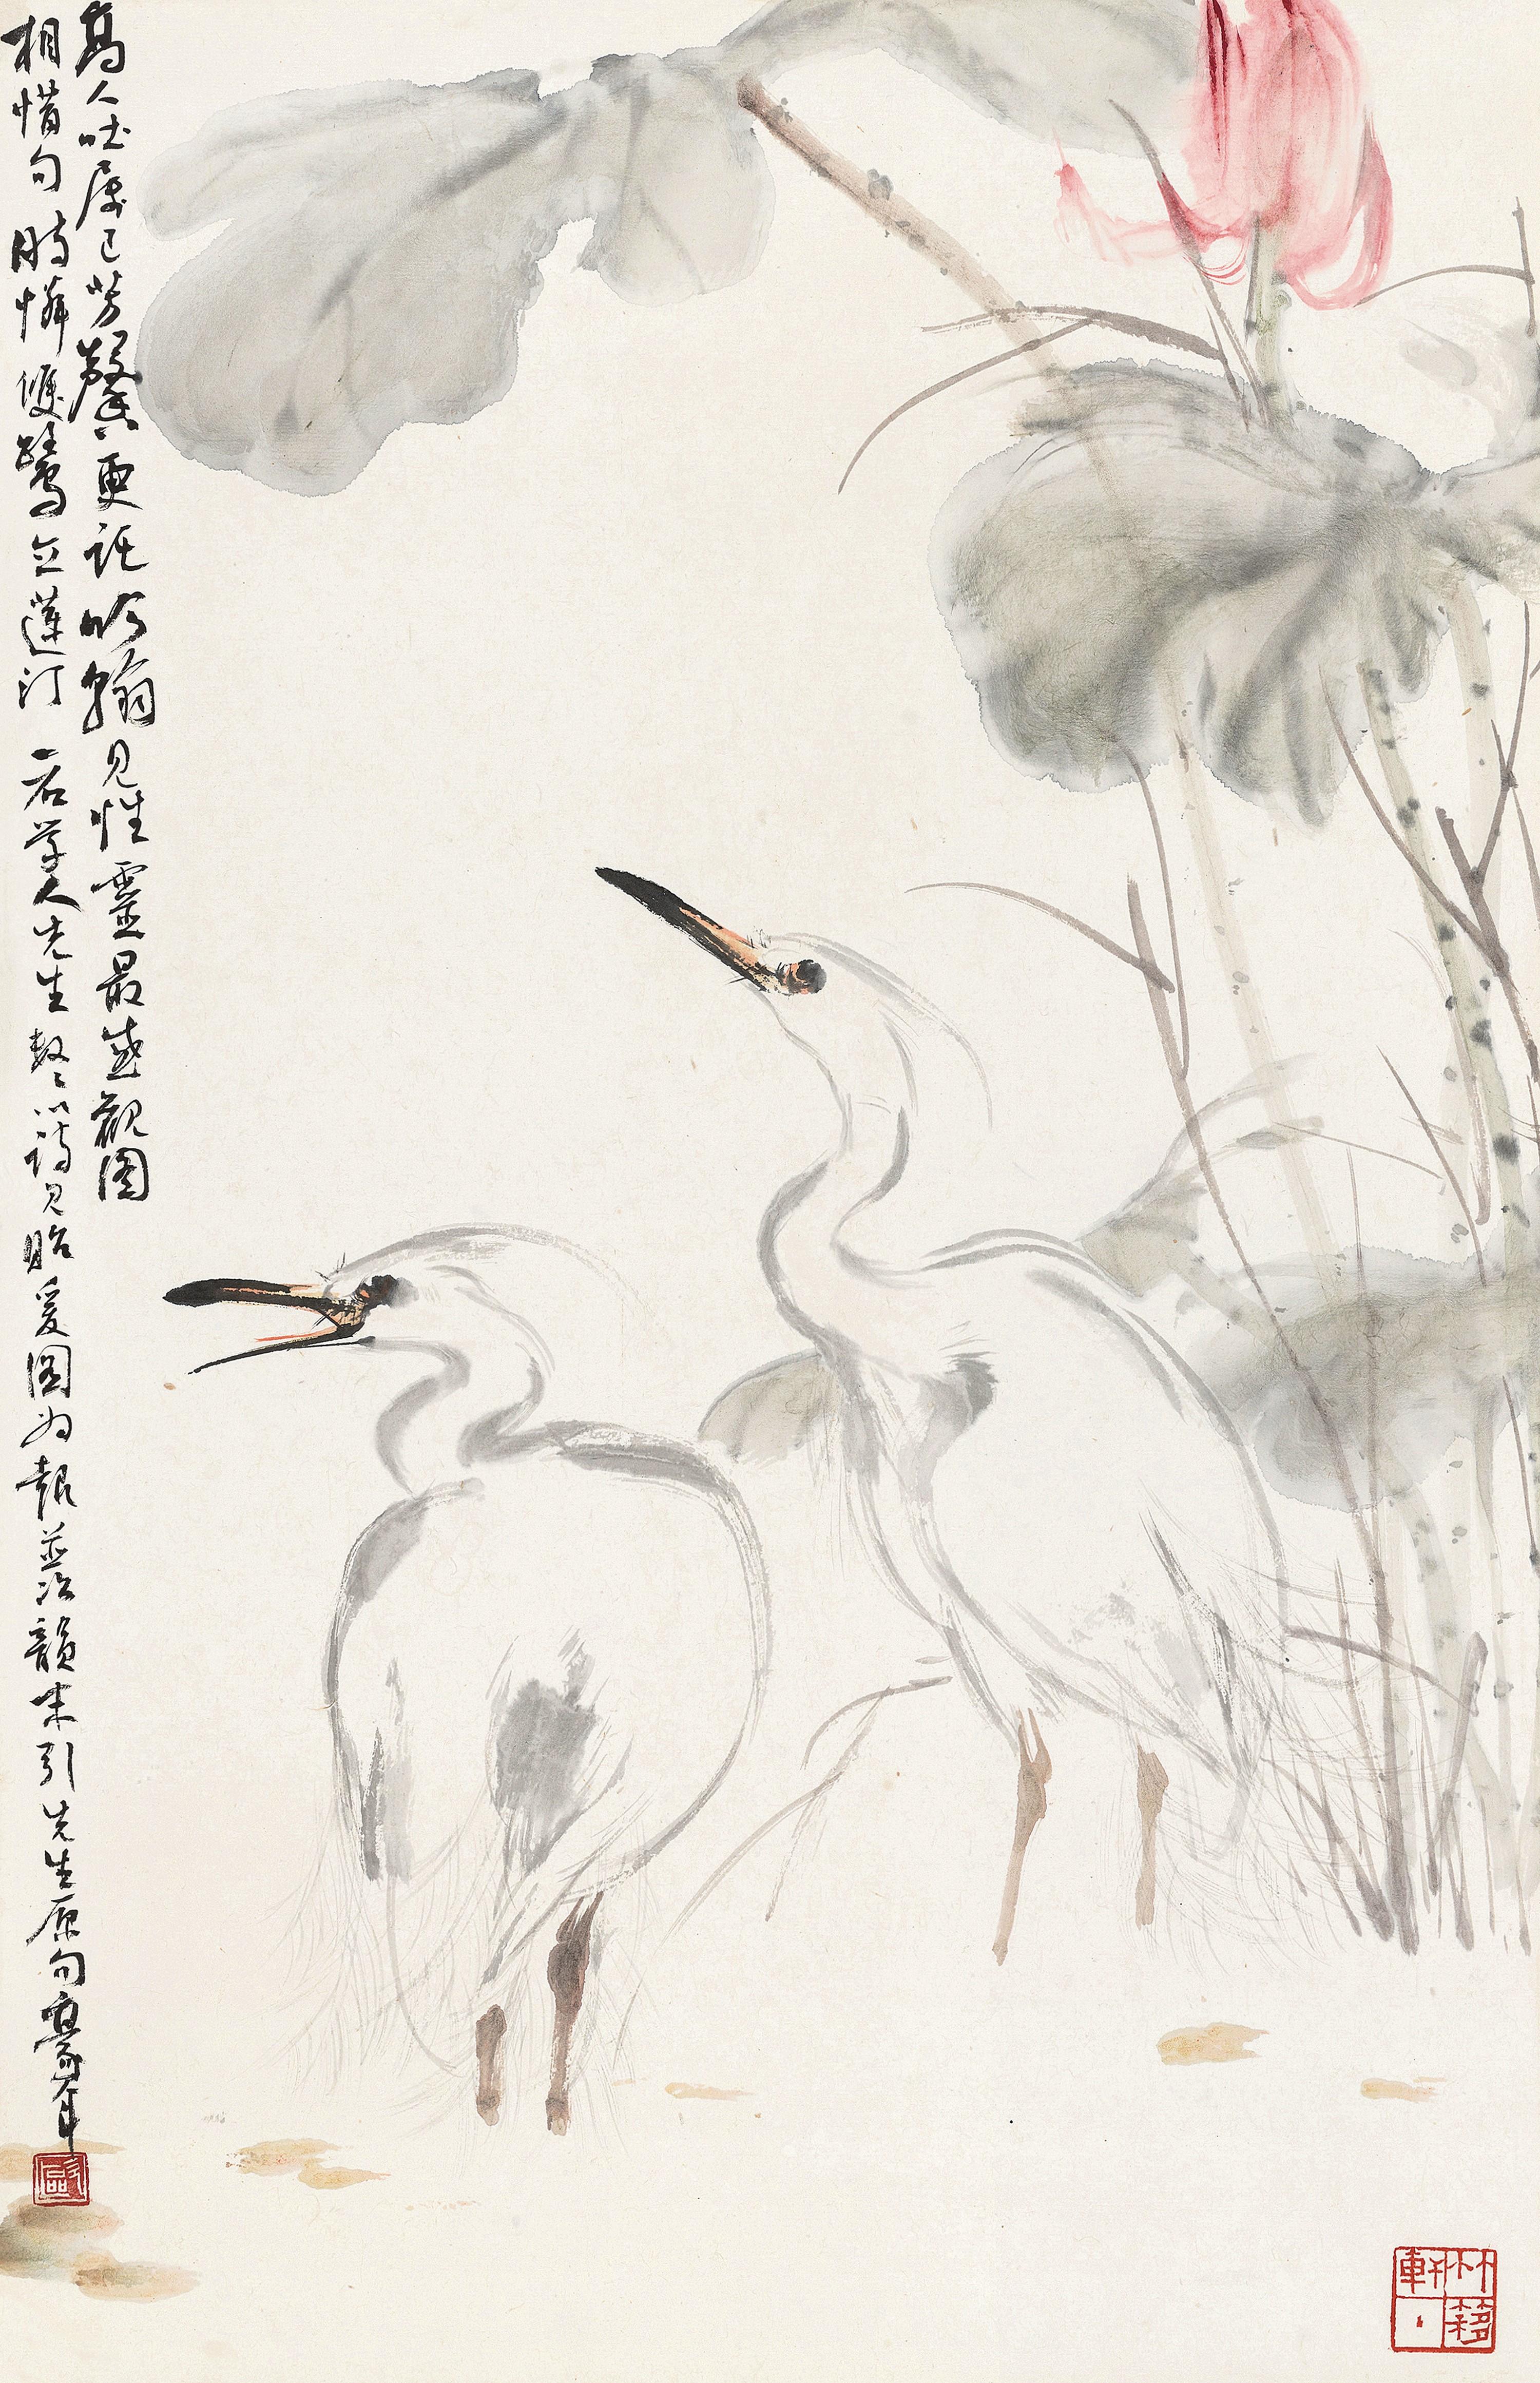 高人吐屬已芳馨更託吟翰見性靈最感觀圖
相惜句時憐雙鷺立蓮汀 學人先生以詩見貽爰圖為報並次韻末引先生原句豪年
歐